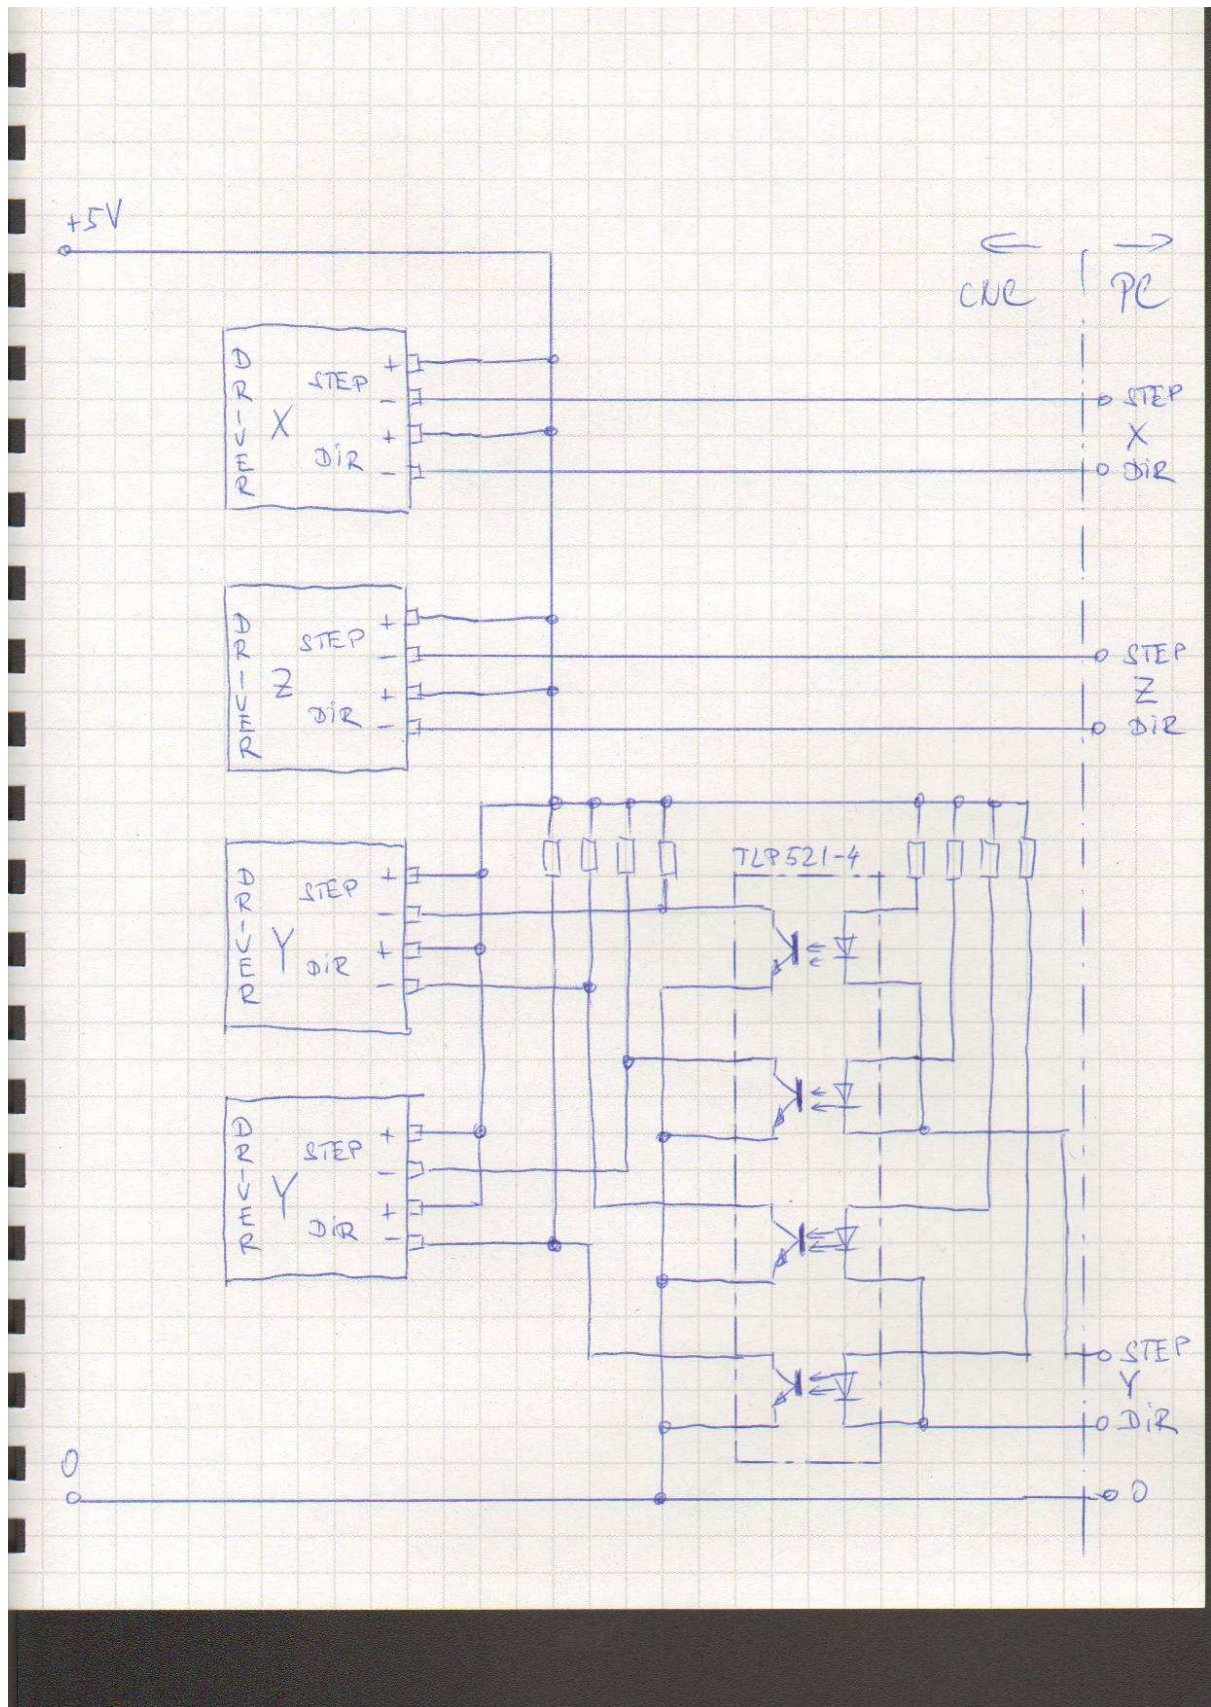 +5V
← →
CNC PC
DRIVER X
STEP + -
DIR + -
STEP
X
DIR
DRIVER Z
STEP + -
DIR + -
STEP
Z
DIR
TLP521-4
DRIVER Y
STEP + -
DIR + -
DRIVER Y
STEP + -
DIR + -
STEP
Y
DIR
0
0